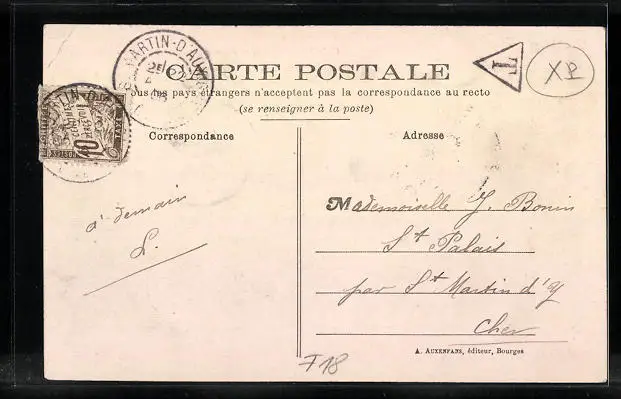 MARTIN-D'AUX
CARTE POSTALE
Tous les pays étrangers n'acceptent pas la correspondance au recto
(se renseigner à la poste)
T
XP
Correspondance
Adresse
à demain
L.
Mademoiselle J. Bonin
St Palais
par St Martin d'
Cher
A. AUXENFANS, éditeur, Bourges
F18